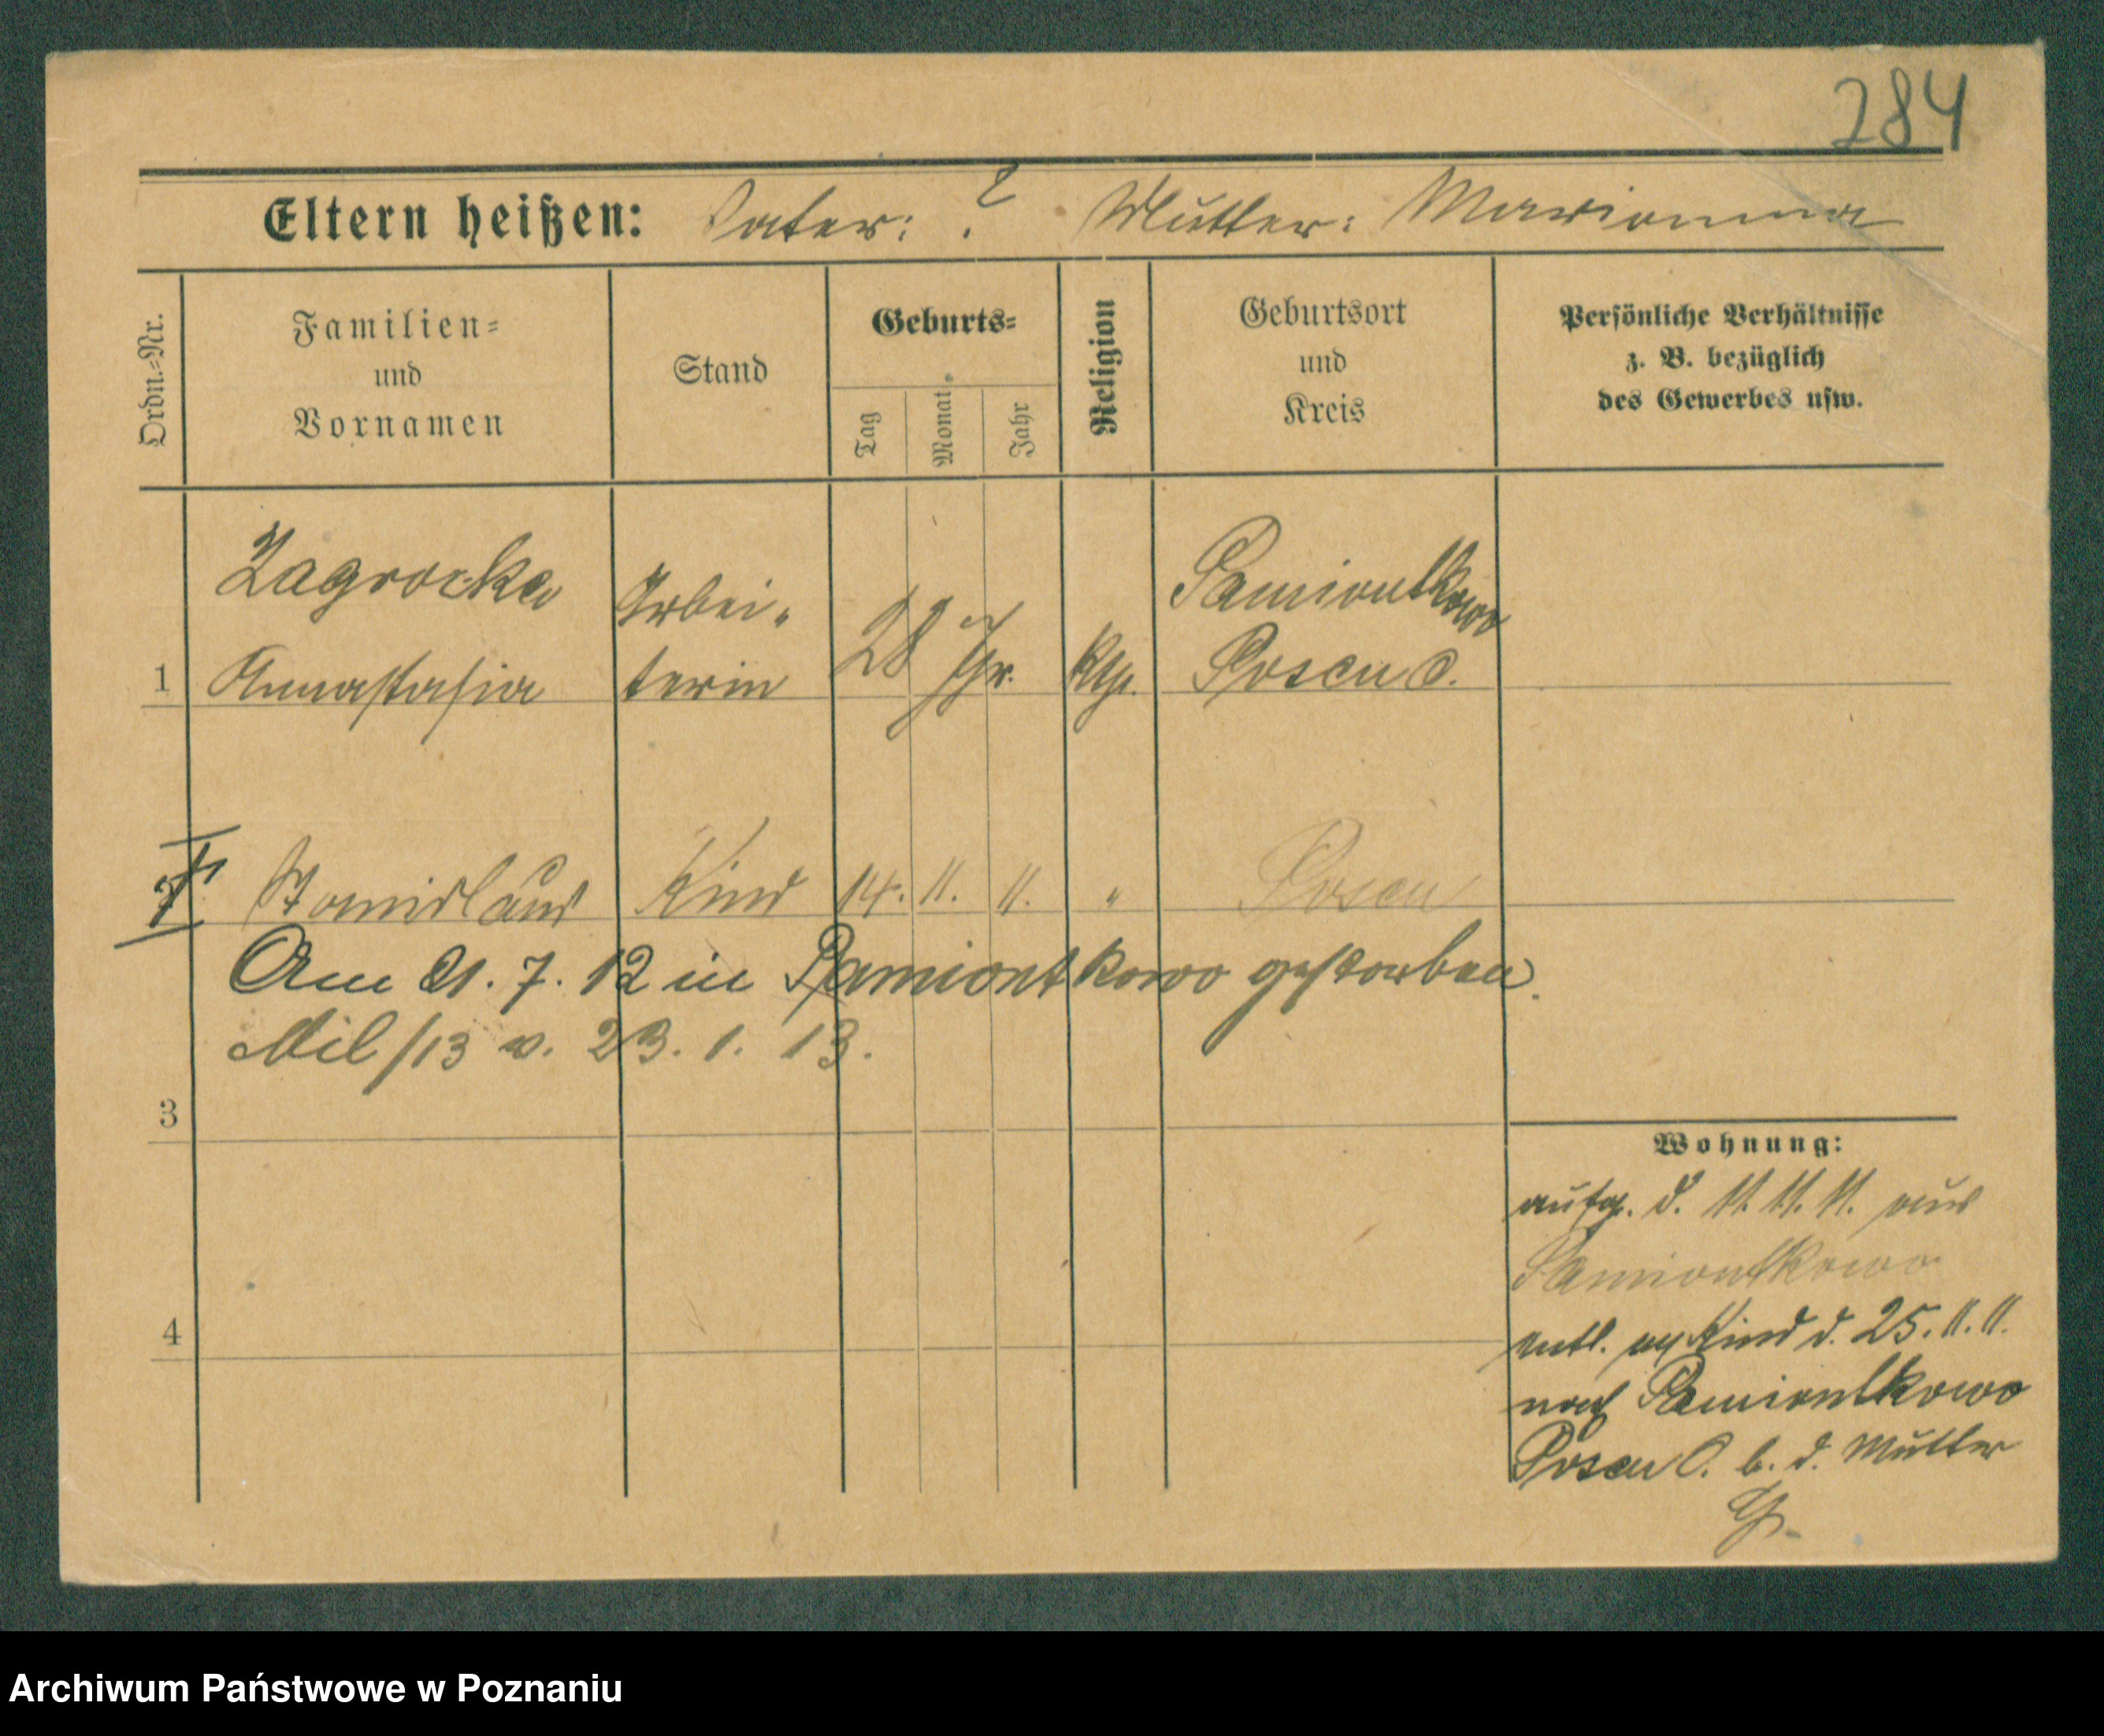 284
Eltern heißen: Vater: ? Mutter: Marianna
Ordn.=Nr.
Familien=
und
Vornamen
Stand
Geburts=
Tag
Monat
Jahr
Religion
Geburtsort
und
Kreis
Persönliche Verhältnisse
z. B. bezüglich
des Gewerbes usw.
Zagrocka Arbei- Pamiontkowo
1 Annastasia terin 28 Jhr. kth. Posen O.
Stanislaus Kind 14. 11. 11. " Posen
Am 21. 7. 12 in Pamiontkowo gestorben.
Mil/13 v. 23. 1. 13.
3
4
Wohnung:
aufg. d. 11. 11. 11. aus
Pamiontkowo
entl. m Kind d. 25. 11. 11.
nach Pamiontkowo
Posen O. b. d. Mutter
Archiwum Państwowe w Poznaniu